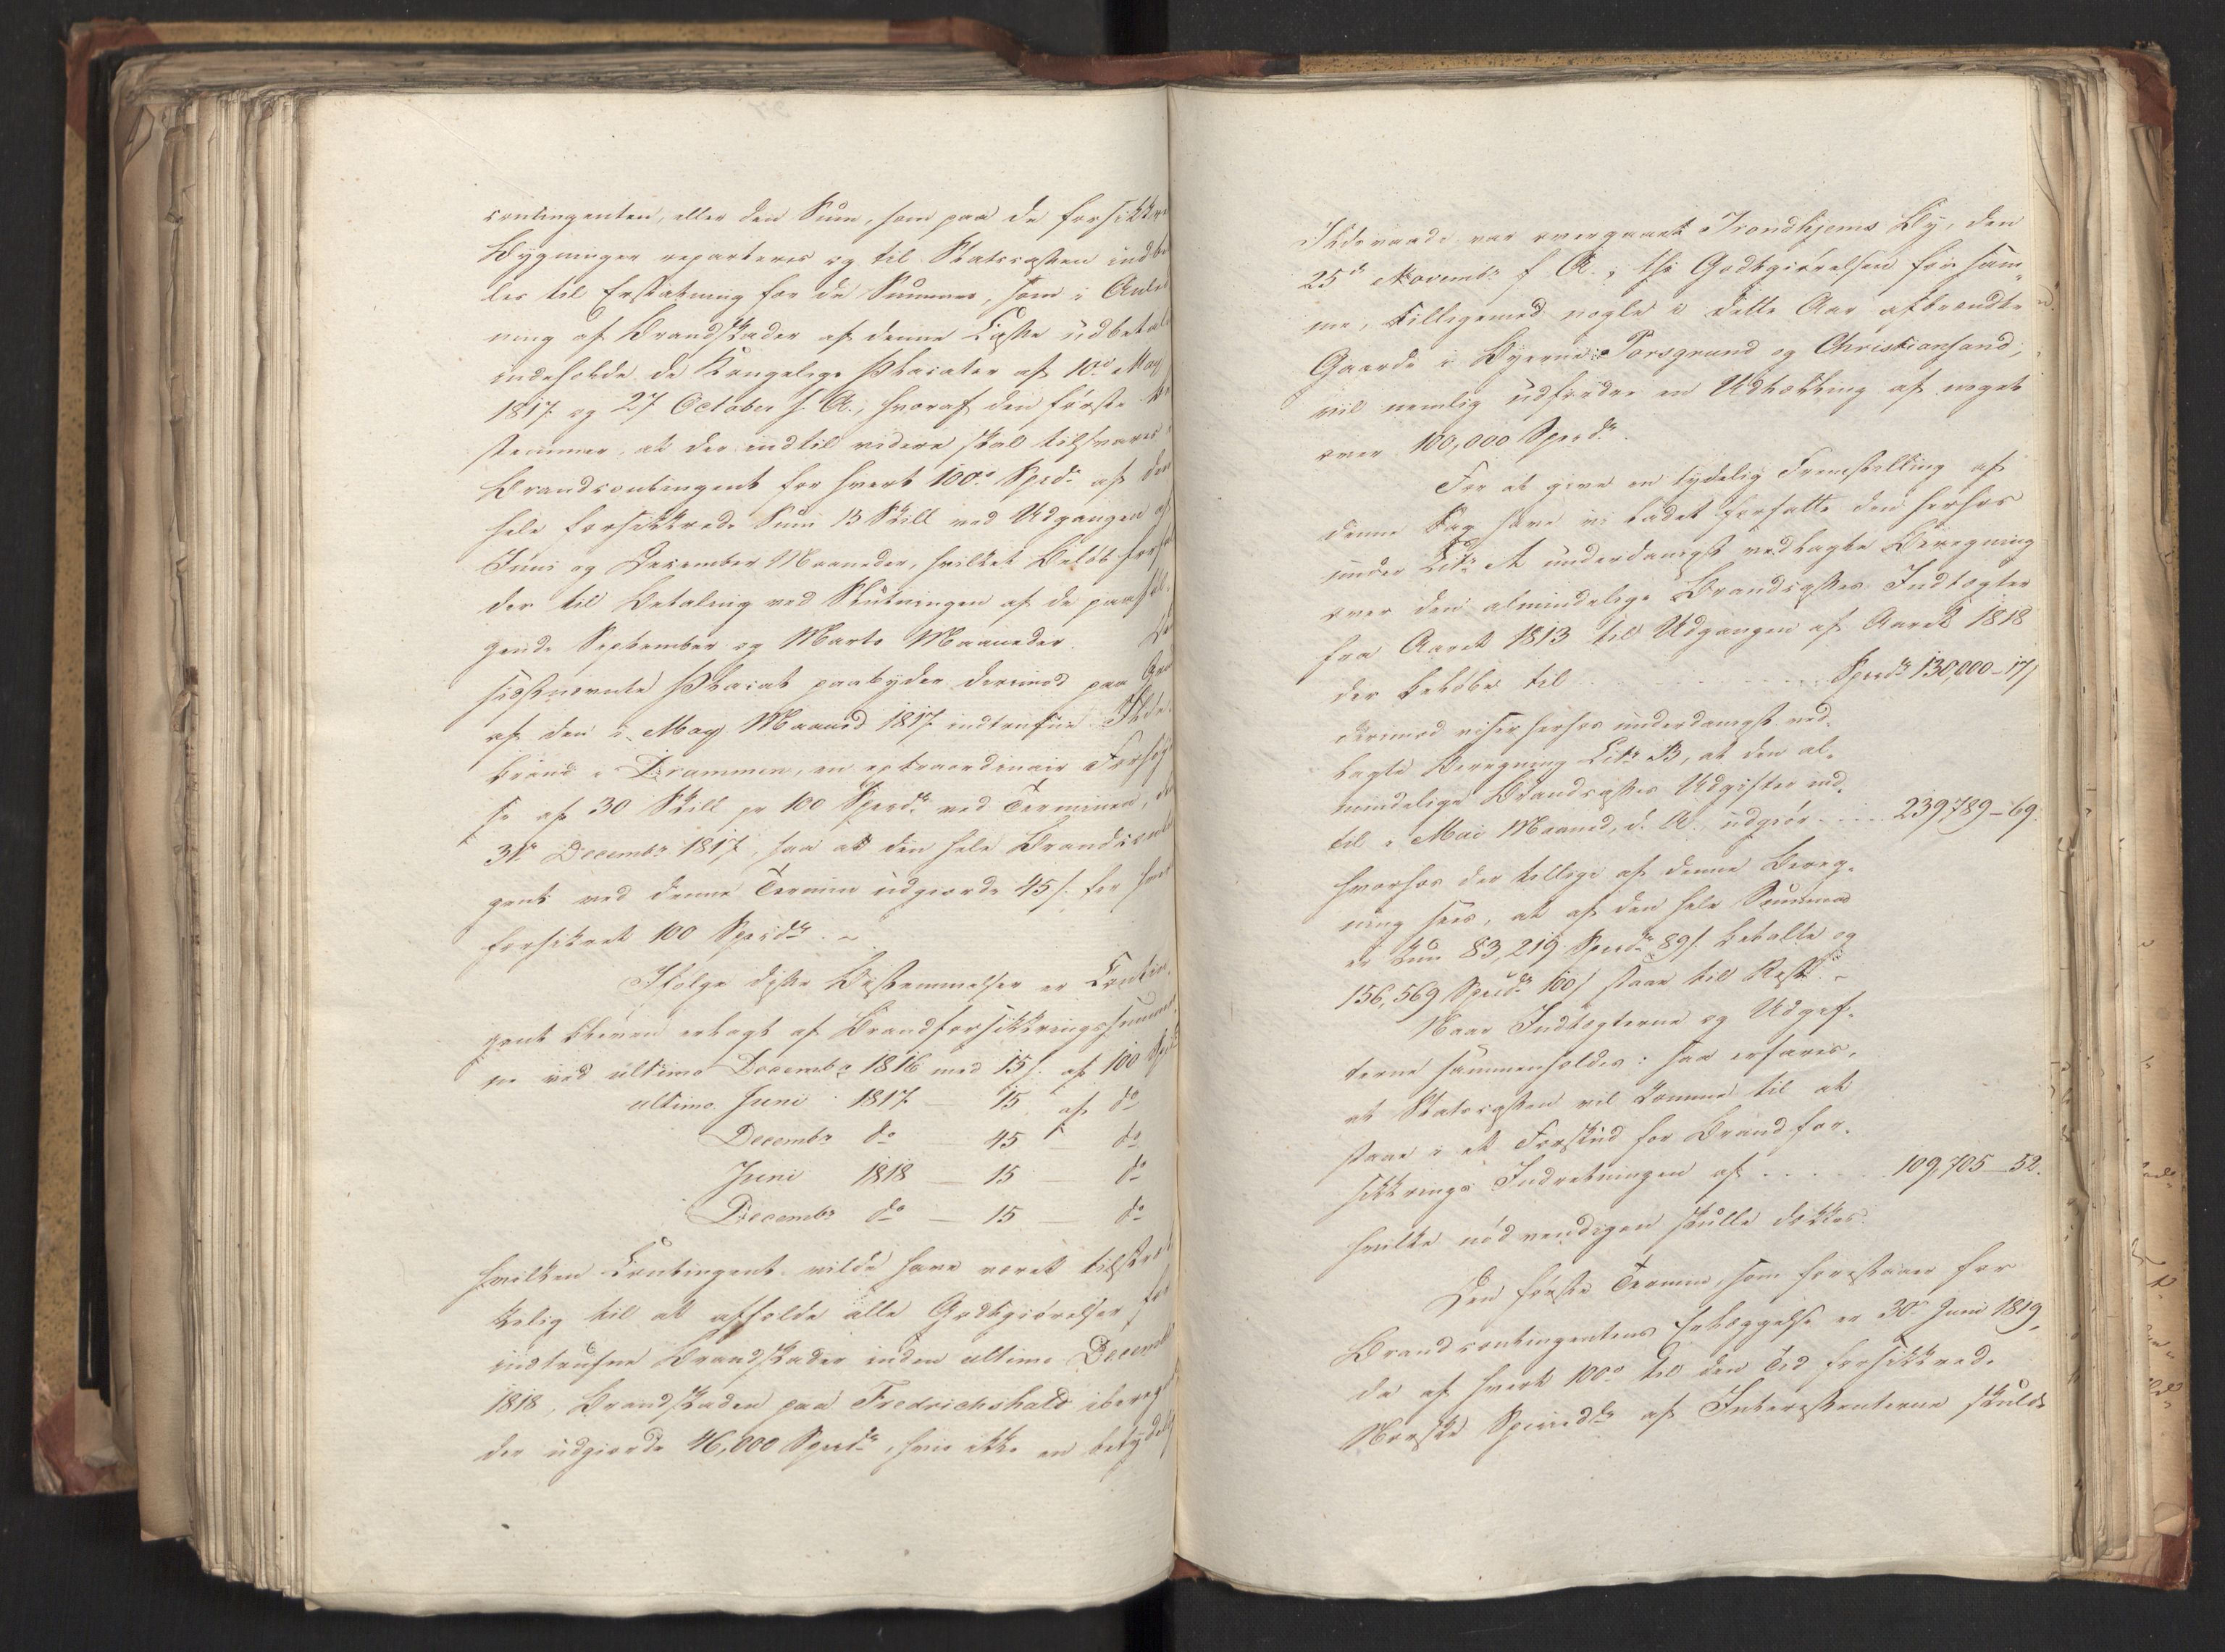 contingenten, eller den Sum, som paa de forsikkre
Bygninger reparteres og til Statscassen indbe
les til Erstatning for de Summer, som i Anled
ning af Brandskader af denne Casse udbetal
indeholde de Kongelige Placater af 10de May
1817 og 27 October s. A., hvoraf den første be
stemmer, at der indtil videre skal tilsvares
Brandcontingent for hvert 100de Spd. af den
hele forsikkrede Sum 15 Skill ved Udgangen af
Juni og December Maaneder, hvilket Beløb forfal
der til Betaling ved Slutningen af de paaføl-
gende September og Marts Maaneder. De
sidstnævnte Placat paabyder derimod paa Gru
af den i May Maaned 1817 indtrufne Ilde-
brand i Drammen, en extraordinair Forhøi
se af 30 Skill pr 100 Specd. ved Terminen, de
31te Decembr 1817, saa at den hele Brandcont
gent ved denne Termin udgjorde 45 s. for hver
forsikret 100 Specd. –
Ifølge disse Bestemmelser er Contin-
gent bleven erlagt af Brandforsikkringssummer-
ne ved ultimo Decembr 1816 med 15 s. af 100 Spd
ultimo Juni 1817 – 15 af do
Decembr do – 45 – do
Juni 1818 – 15 – do
Decembr do – 15 – do
hvilken Contingent vilde have været tilstræk
kelig til at afholde alle Godtgiørelser for
indtrufne Brandskader inden ultimo Decembr
1818, Brandskaden paa Fredrichshald ibereg
der udgiorde 46,000 Specd., hvis ikke en betydelig
Ildsvaade var overgaaet Trondhjems By, den
25de Novembr f. A.; thi Godtgiørelsen for sam-
me, tilligemed nogle i dette Aar afbrændte
Gaarde i Byerne Porsgrund og Christiansand,
vil nemlig udfordre en Udtælling af noget
over 100,000 Specd.
For at give en tydelig Fremstilling af
denne Sag have vi ladet forfatte den herhos
under Litr A underdanigst vedlagte Beregning
over den almindelige Brandcasses Indtægter
fra Aaret 1813 til Udgangen af Aaret 1818
der beløbe til . . . . . . Specd. 130,000 – 17 s
derimod viser herhos underdanigst ved-
lagte Beregning Litr B, at den al-
mindelige Brandcasses Udgifter ind-
til i Mai Maaned, d. A. udgiør . . . . 239,789 – 69.
hvorhos der tillige af denne Bereg-
ning sees, at af den hele Summa
er kun 83,219 Specd. 89 s. betalte og
156,569 Specd. 100 s staar til Rest. –
Naar Indtægterne og Udgif-
terne sammenholdes: saa erfares,
at Statscassen vil komme til at
staae i et Forskud for Brandfor-
sikkrings Indretningen af . . . . . 109,705 – 52.
hvilke nødvendigen skulle dækkes.
Den første Termin, som forestaaer for
Brandcontingentens Erlæggelse er 30te Juni 1819,
da af hvert 100de til den Tid forsikkrede
Norske Speciedlr af Interessenterne skulde